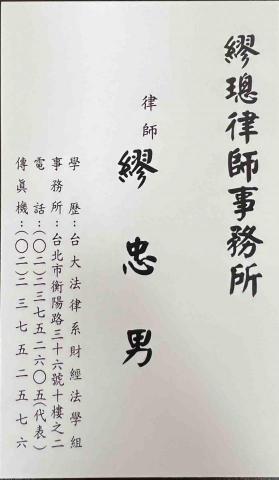 繆璁律師事務所
律師
繆忠男
學歷：台大法律系財經法學組
事務所：台北市衡陽路三十六號十樓之二
電話：(〇二)二三七五二六〇五(代表)
傳眞機：(〇二)二三七五二五七六